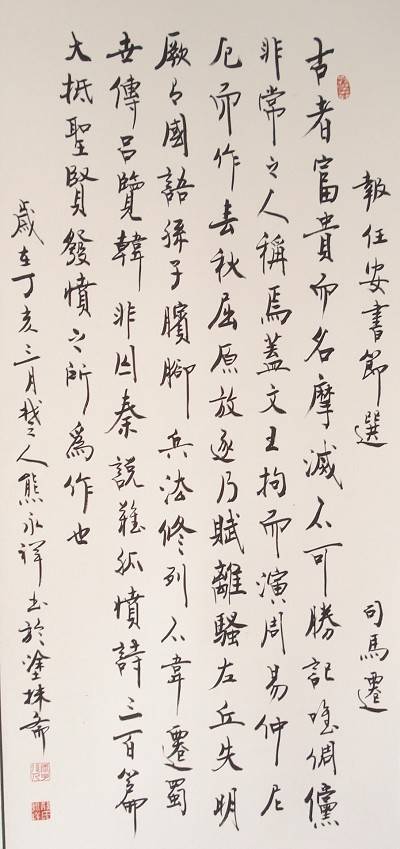 報任安書節選 司馬遷
古者富貴而名摩滅不可勝記唯倜儻
非常之人稱焉蓋文王拘而演周易仲尼
厄而作春秋屈原放逐乃賦離騷左丘失明
厥有國語孫子臏腳兵法修列不韋遷蜀
世傳呂覽韓非囚秦說難孤憤詩三百篇
大抵聖賢發憤之所爲作也
歲在丁亥三月楚人熊永祥书於塗抹齋